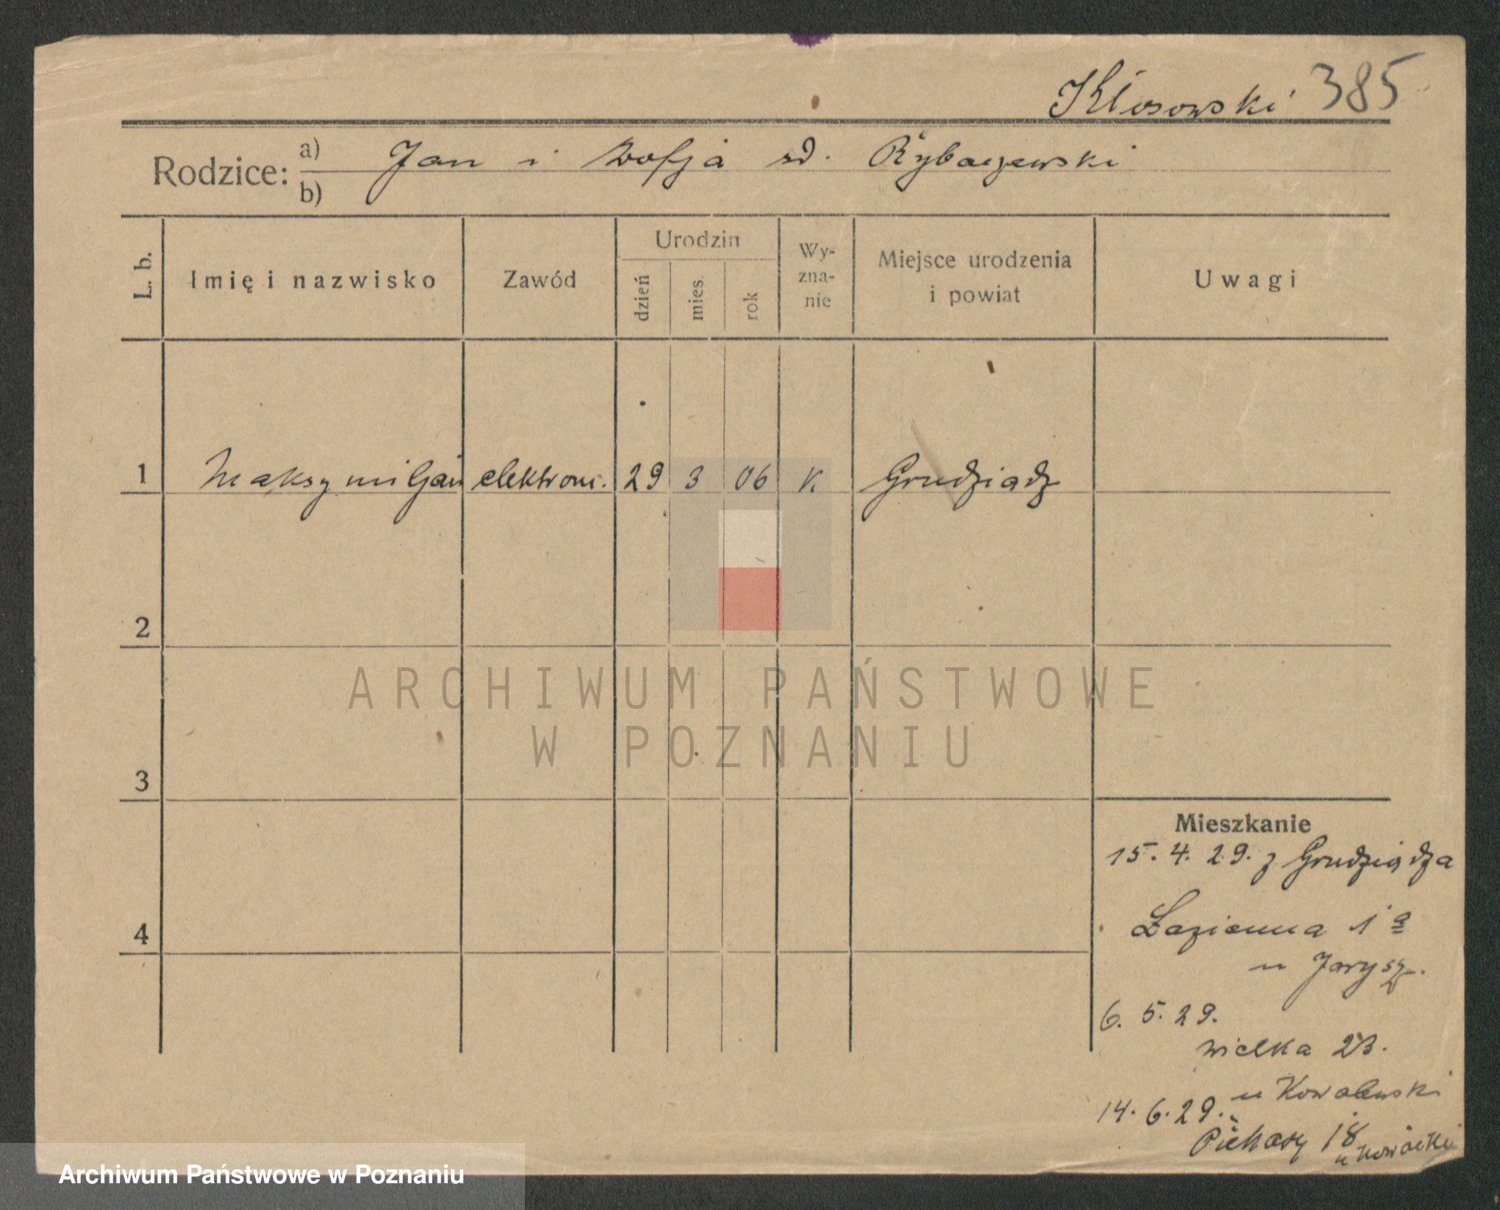 Kłosowski 385
Rodzice: a) Jan i Zofja zd. Rybaczewski
b)
L. b.
Imię i nazwisko
Zawód
Urodzin
dzień
mies.
rok
Wy-
zna-
nie
Miejsce urodzenia
i powiat
Uwagi
1 Maksymiljan elektrom. 29 3 06 k. Grudziądz
2
ARCHIWUM PAŃSTWOWE
W POZNANIU
3
Mieszkanie
15. 4. 29. z Grudziądza
4
Łazienna 1 a
u Jarysz.
6. 5. 29.
Wielka 23.
u Kowalewski
14. 6. 29.
Piekary 18
u
Archiwum Państwowe w Poznaniu